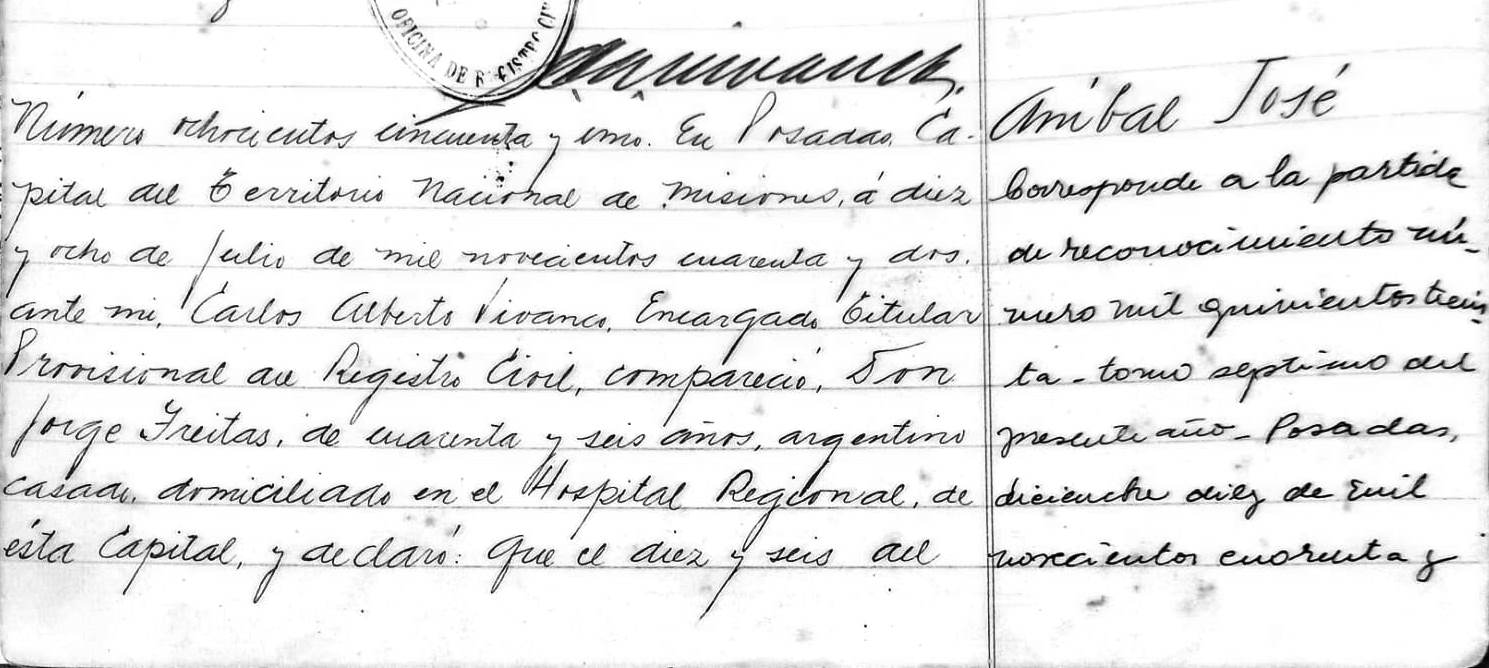 OFICINA DE REGISTRO CIV
Número ochocientos cincuenta y uno. En Posadas, Ca-
pital del Territorio Nacional de Misiones, á diez
y ocho de Julio de mil novecientos cuarenta y dos.
ante mi, Carlos Alberto Vivanco, Encargado Titular
Provisional del Registro Civil, compareció, Don
Jorge Freitas, de cuarenta y seis años, argentino
casado, domiciliado en el Hospital Regional, de
ésta Capital, y declaró: Que el diez y seis del
Aníbal José
Corresponde a la partida
de reconocimiento nú-
mero mil quinientos trein-
ta - tomo septimo del
presente año - Posadas,
diciembre diez de mil
novecientos cuarenta y